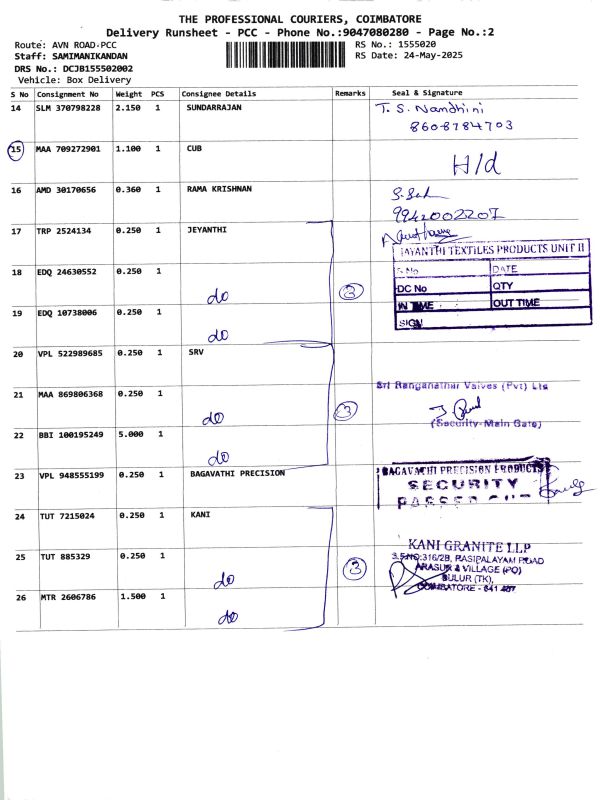 THE PROFESSIONAL COURIERS, COIMBATORE
Delivery Runsheet - PCC - Phone No.:9047080280 - Page No.:2
Route: AVN ROAD-PCC
RS No.: 1555020
Staff: SAMIMANIKANDAN
RS Date: 24-May-2025
DRS No.: DCJB155502002
Vehicle: Box Delivery
S No Consignment No Weight PCS Consignee Details Remarks Seal & Signature
14 SLM 370798228 2.150 1 SUNDARRAJAN T. S. Nandhini
8608784703
15 MAA 709272901 1.100 1 CUB H/d
16 AMD 30170656 0.360 1 RAMA KRISHNAN
9942002207
17 TRP 2524134 0.250 1 JEYANTHI
JAYANTHI TEXTILES PRODUCTS UNIT II
S.No DATE
DC No QTY
IN TIME OUT TIME
SIGN
18 EDQ 24630552 0.250 1 do 3
19 EDQ 10738006 0.250 1 do
20 VPL 522989685 0.250 1 SRV
Sri Ranganathar Valves (Pvt) Ltd
21 MAA 869806368 0.250 1 do 3
(Security-Main Gate)
22 BBI 100195249 5.000 1 do
23 VPL 948555199 0.250 1 BAGAVATHI PRECISION
BAGAVATHI PRECISION PRODUCTS
SECURITY
PASSED OUT
24 TUT 7215024 0.250 1 KANI
KANI GRANITE LLP
S.F.NO:316/2B, RASIPALAYAM ROAD
ARASUR & VILLAGE (PO)
SULUR (TK),
COIMBATORE - 641 407
25 TUT 885329 0.250 1 do 3
26 MTR 2606786 1.500 1 do